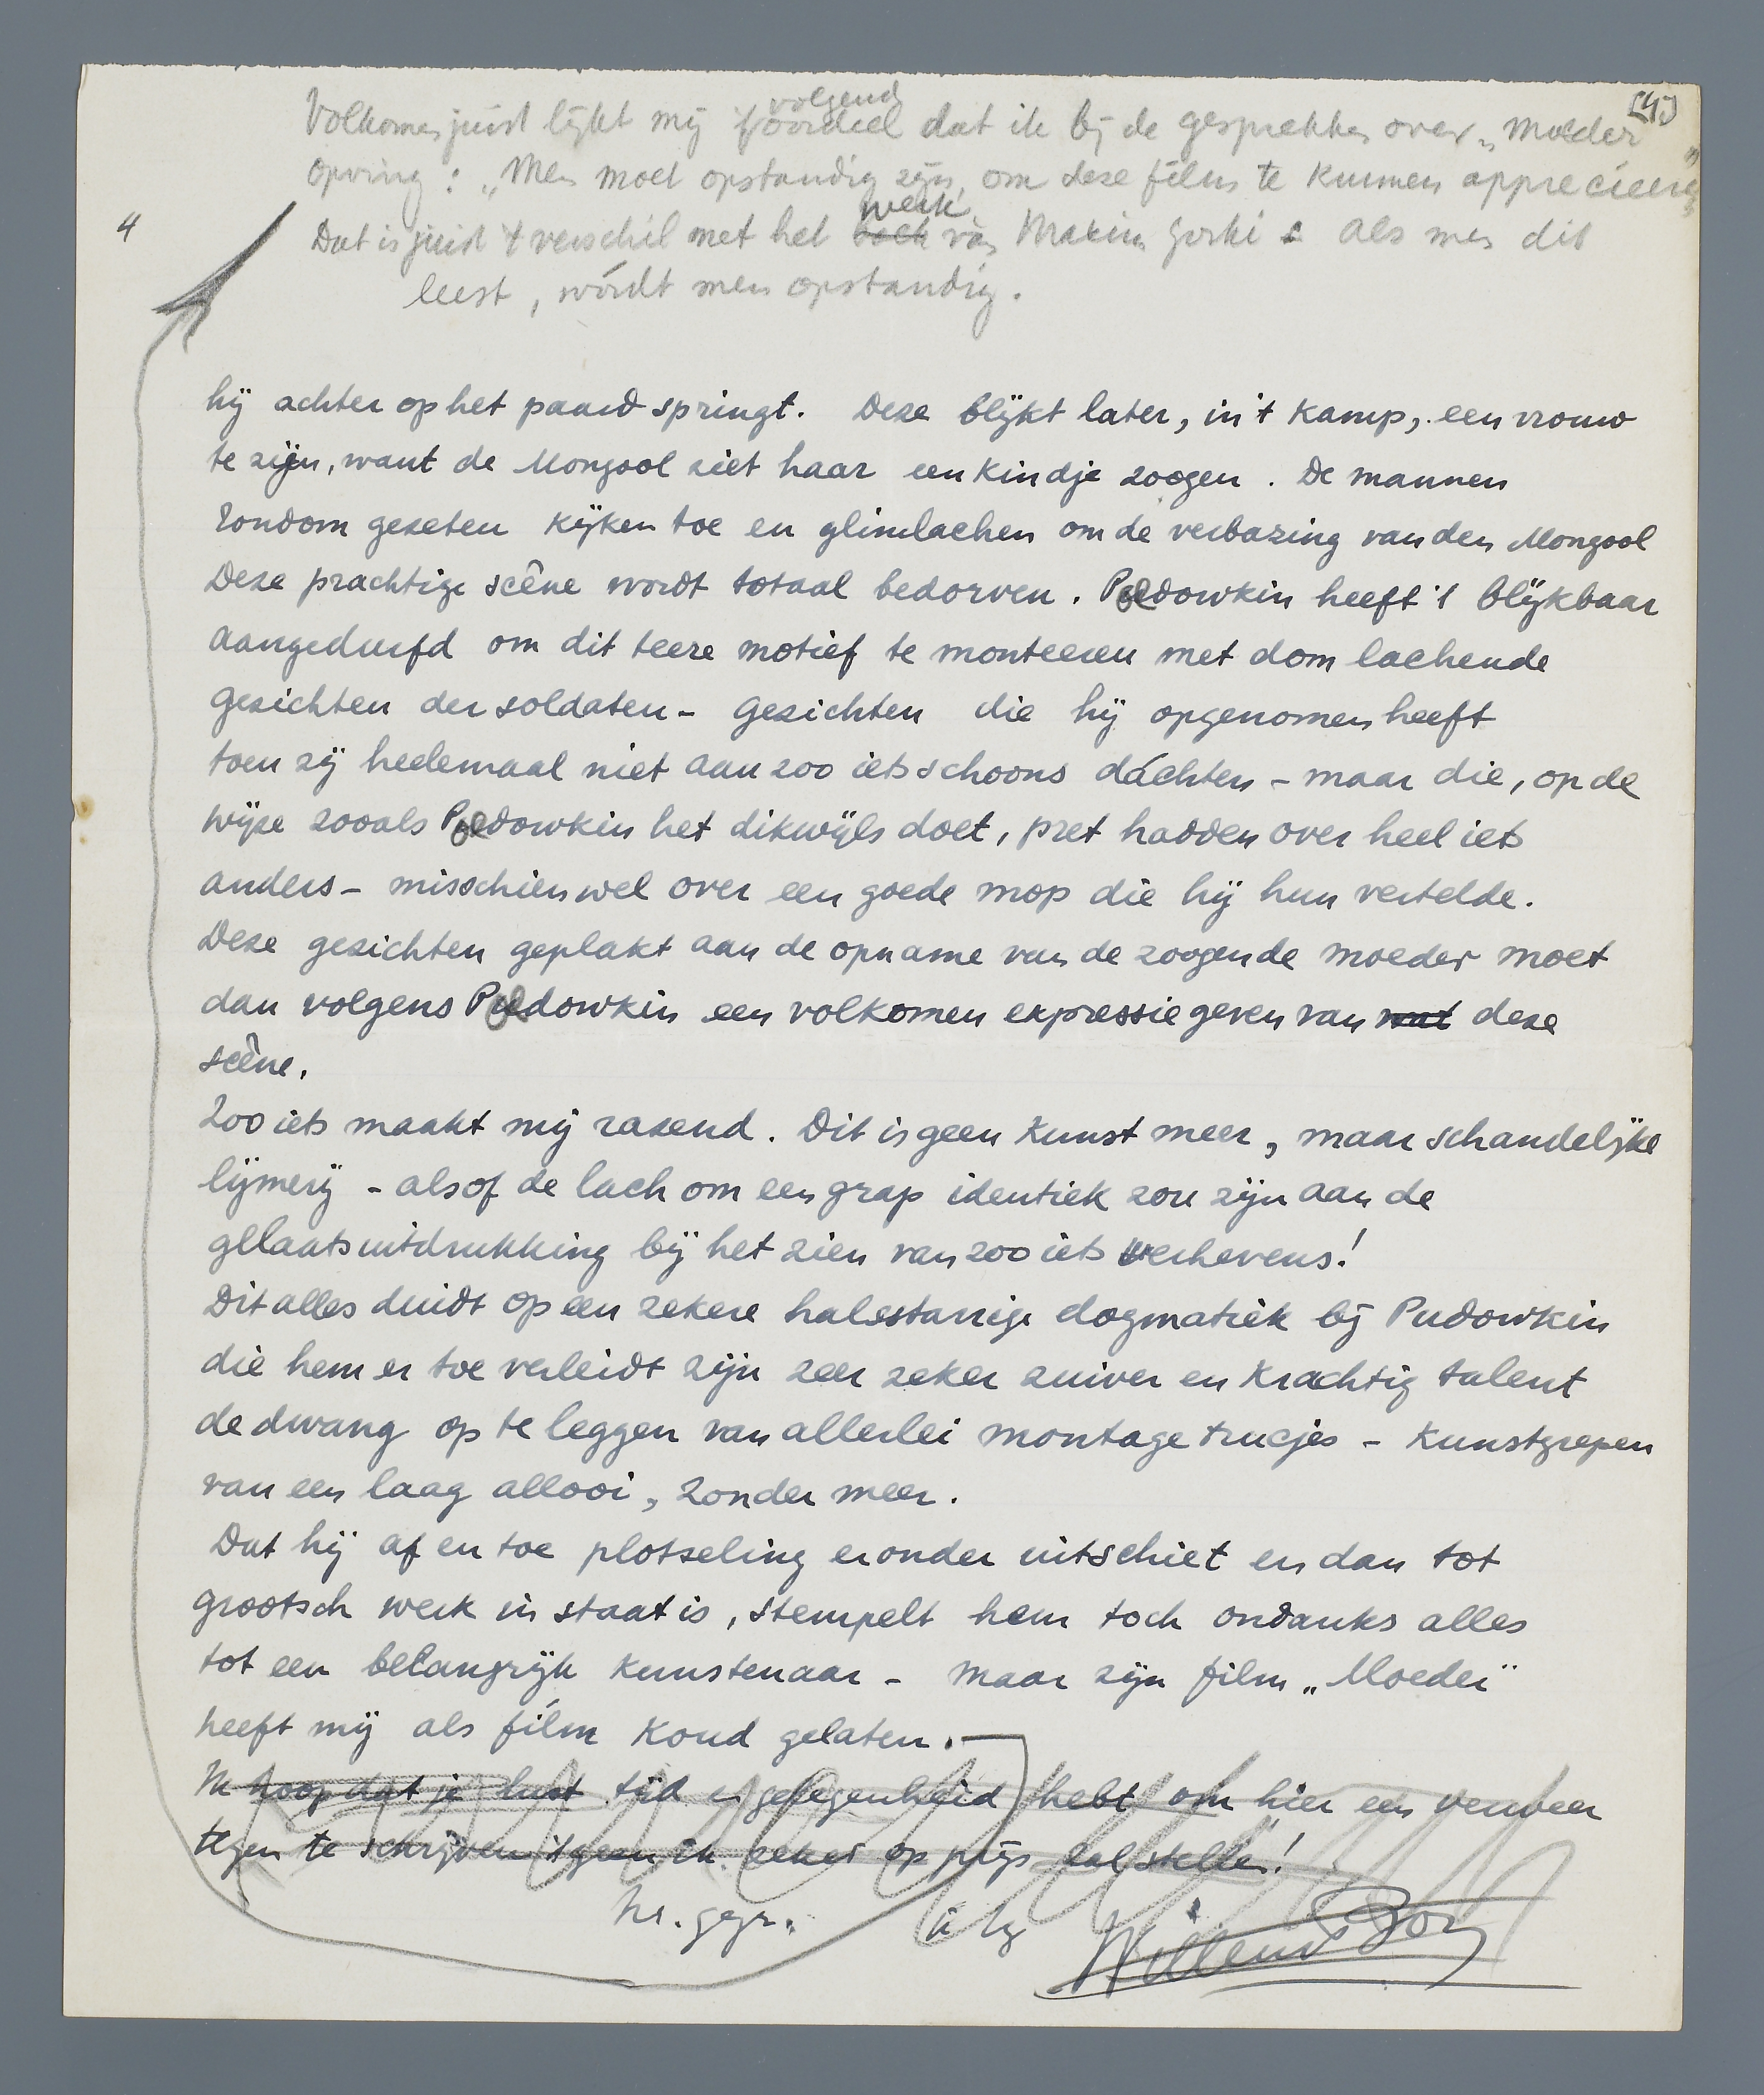 [4]
volgend
Volkomen juist lijkt mij 't oordeel dat ik bij de gesprekken over „Moeder"
opving: „Men moet opstandig zijn, om deze film te kunnen appreciëeren"
4
werk
Dat is juist 't verschil met het boek van Maxim Gorki : als men dit
leest, wórdt men opstandig.
hij achter op het paard springt. Deze blijkt later, in 't kamp, een vrouw
te zijn, want de Mongool ziet haar een kindje zoogen. De mannen
rondom gezeten kijken toe en glimlachen om de verbazing van den Mongool
Deze prachtige scêne wordt totaal bedorven. Poedowkin heeft 't blijkbaar
aangedurfd om dit teere motief te monteeren met dom lachende
gezichten der soldaten - gezichten die hij opgenomen heeft
toen zij heelemaal niet aan zoo iets schoons dáchten - maar die, op de
wijze zooals Poedowkin het dikwijls doet, pret hadden over heel iets
anders - misschien wel over een goede mop die hij hun vertelde.
Deze gezichten geplakt aan de opname van de zoogende moeder moet
dan volgens Poedowkin een volkomen expressie geven van wat deze
scêne.
Zoo iets maakt mij razend. Dit is geen kunst meer, maar schandelijke
lijmerij - alsof de lach om een grap identiek zou zijn aan de
gelaatsuitdrukking bij het zien van zoo iets verhevens!
Dit alles duidt op een zekere halsstarrige dogmatiek bij Pudowkin
die hem er toe verleidt zijn zeer zeker zuiver en krachtig talent
de dwang op te leggen van allerlei montage trucjes - kunstgrepen
van een laag allooi, zonder meer.
Dat hij af en toe plotseling eronder uitschiet en dan tot
grootsch werk in staat is, stempelt hem toch ondanks alles
tot een belangrijk kunstenaar - maar zijn film „Moeder"
heeft mij als film koud gelaten.
Ik hoop dat je lust tijd en gelegenheid hebt om hier een verweer
tegen te schrijven 't geen ik zeker op prijs zal stellen!
hr. gegr.
Willem Bon